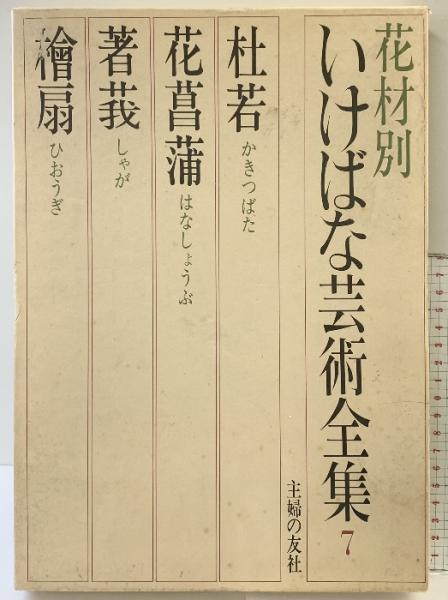 花材別
いけばな芸術全集 7
主婦の友社
杜若 かきつばた
花菖蒲 はなしょうぶ
著莪 しゃが
檜扇 ひおうぎ